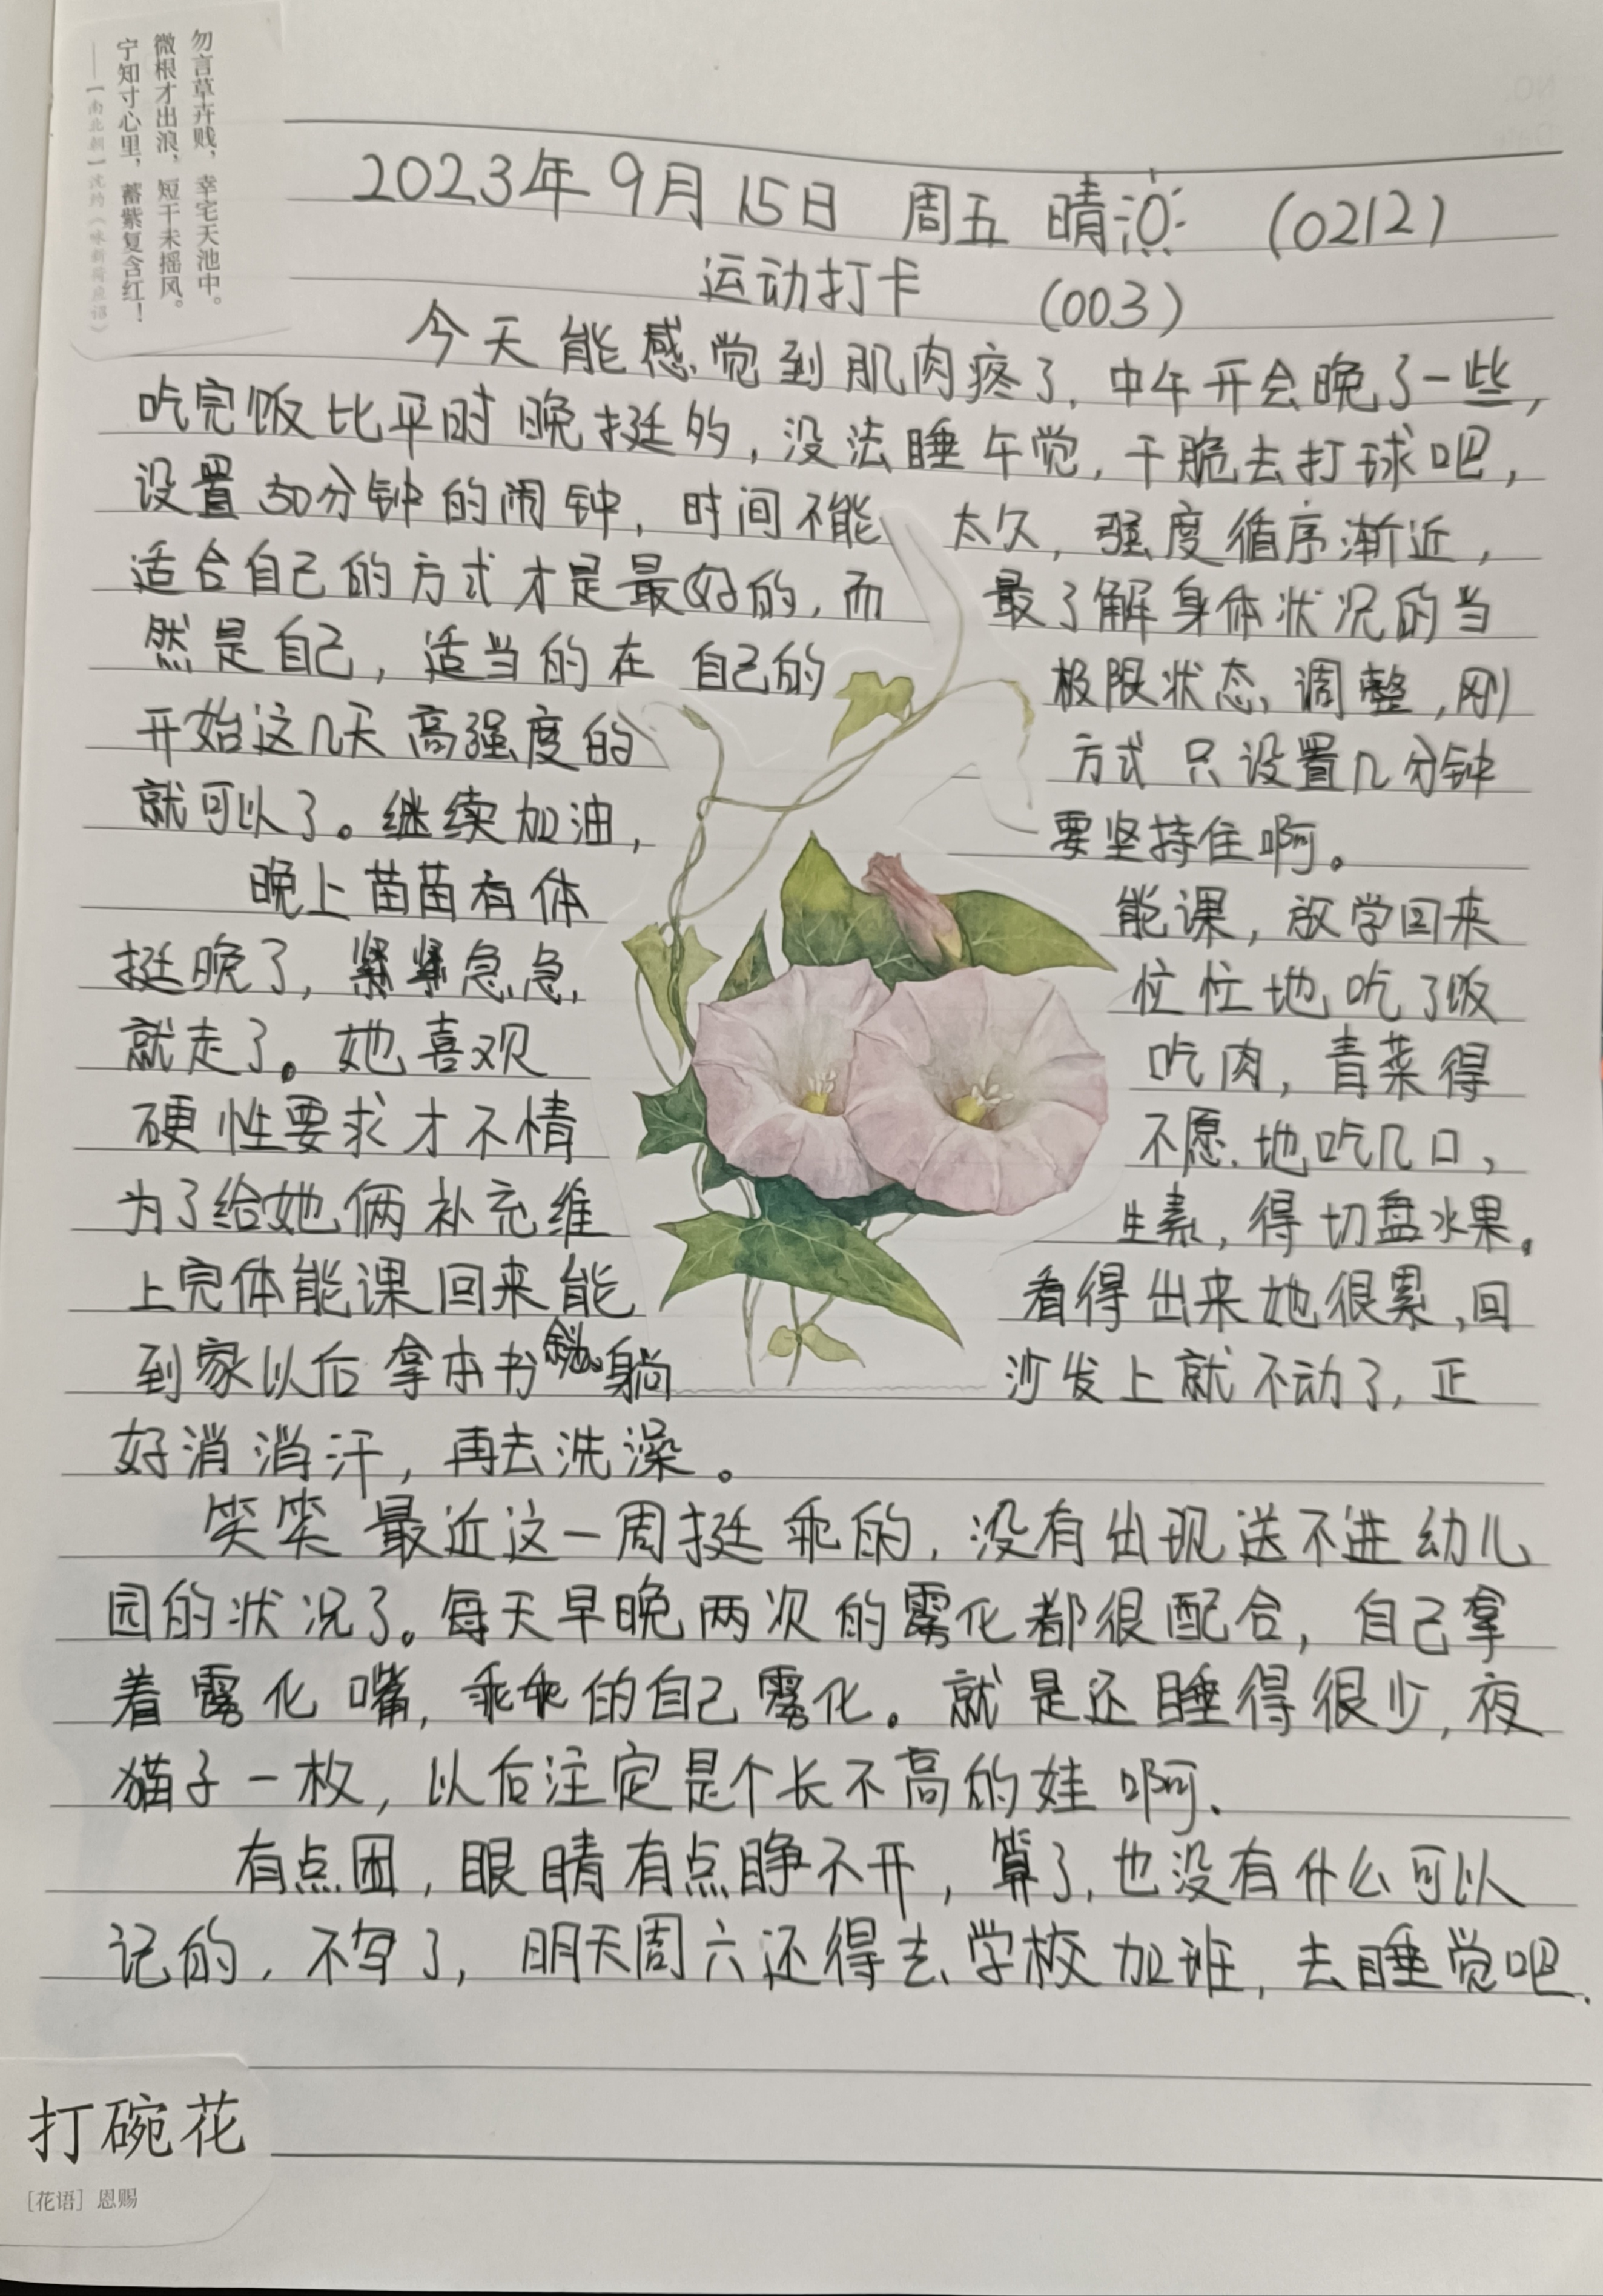 勿言草卉贱，幸宅天池中。
微根才出浪，短干未摇风。
宁知寸心里，蓄紫复含红！
——【南北朝】沈约《咏新荷应诏》
2023年9月15日 周五 晴 (0212)
运动打卡 (003)
今天能感觉到肌肉疼了，中午开会晚了一些，
吃完饭比平时晚挺多的，没法睡午觉，干脆去打球吧，
设置30分钟的闹钟，时间不能太久，强度循序渐近，
适合自己的方式才是最好的，而最了解身体状况的当
然是自己，适当的在自己的极限状态调整，刚
开始这几天高强度的方式只设置几分钟
就可以了。继续加油，要坚持住啊。
晚上苗苗有体能课，放学回来
挺晚了，紧紧急急，忙忙地吃了饭
就走了。她喜欢吃肉，青菜得
硬性要求才不情不愿地吃几口，
为了给她俩补充维生素，得切盘水果。
上完体能课回来能看得出来她很累，回
到家以后拿本书躺沙发上就不动了，正
好消消汗，再去洗澡。
笑笑最近这一周挺乖的，没有出现送不进幼儿
园的状况了。每天早晚两次的雾化都很配合，自己拿
着雾化嘴，乖乖的自己雾化。就是还睡得很少，夜
猫子一枚，以后注定是个长不高的娃啊。
有点困，眼睛有点睁不开，算了，也没有什么可以
记的，不写了，明天周六还得去学校加班，去睡觉吧.
打碗花
［花语］恩赐